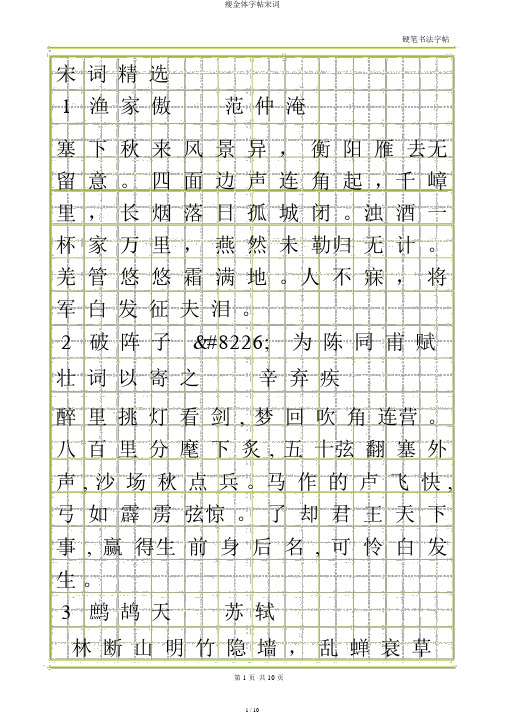 瘦金体字帖宋词
硬笔书法字帖
宋词精选
1 渔家傲 范仲淹
塞下秋来风景异，衡阳雁去无
留意。四面边声连角起,千嶂
里，长烟落日孤城闭。浊酒一
杯家万里，燕然未勒归无计。
羌管悠悠霜满地。人不寐，将
军白发征夫泪。
2 破阵子 &#8226; 为陈同甫赋
壮词以寄之 辛弃疾
醉里挑灯看剑,梦回吹角连营。
八百里分麾下炙,五十弦翻塞外
声,沙场秋点兵。马作的卢飞快,
弓如霹雳弦惊。了却君王天下
事,赢得生前身后名,可怜白发
生。
3 鹧鸪天 苏轼
林断山明竹隐墙，乱蝉衰草
第 1 页 共 10 页
1 / 10